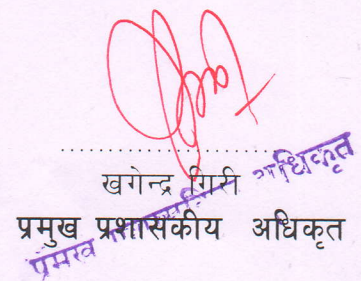 ..............................
खगेन्द्र गिरी
प्रमुख प्रशासकीय अधिकृत
प्रमुख प्रशासकीय अधिकृत